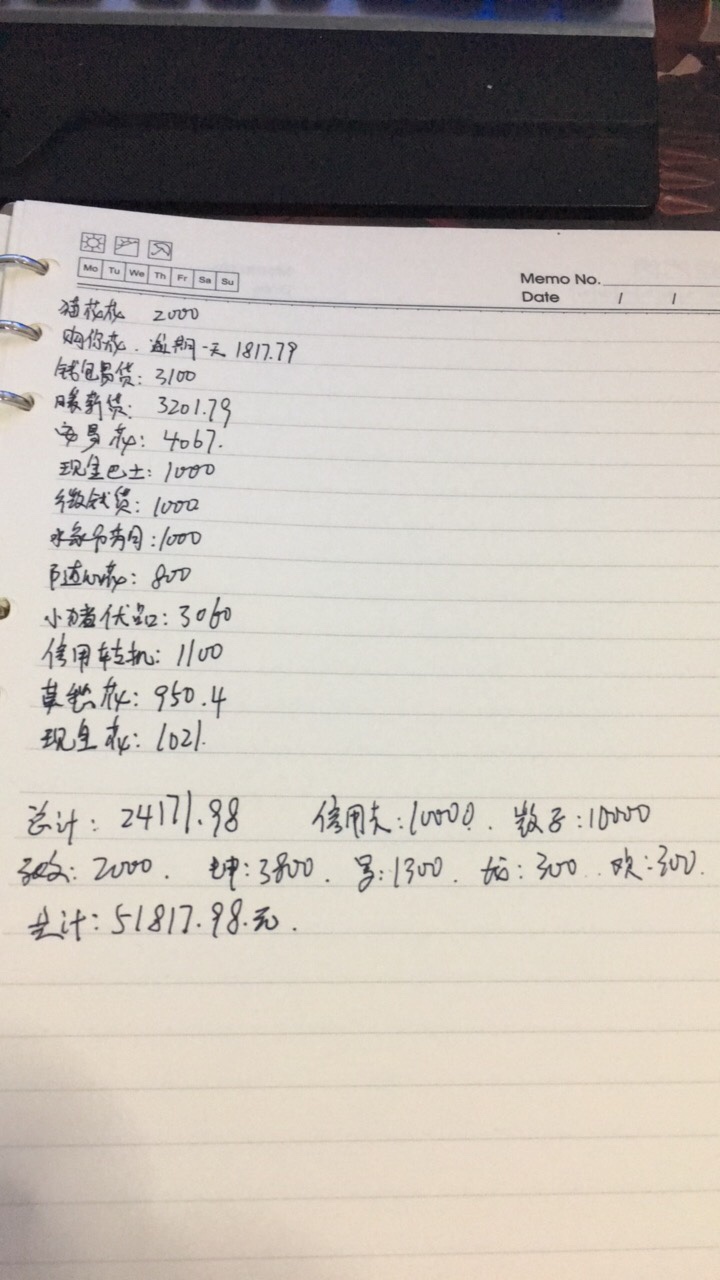 Mo Tu We Th Fr Sa Su
Memo No.
Date / /
2000
购你花. 逾期一天 1817.79
钱包易贷: 3100
暖薪贷: 3201.79
安易花: 4067.
现金巴士: 1000
微钱贷: 1000
:1000
: 800
小猪优品: 3060
信用转机: 1100
: 950.4
现金花: 1021.
总计: 24171.98 信用卡:10000. :10000
: 2000. :3800. :1300. :300. 欢:300.
共计: 51817.98.元.